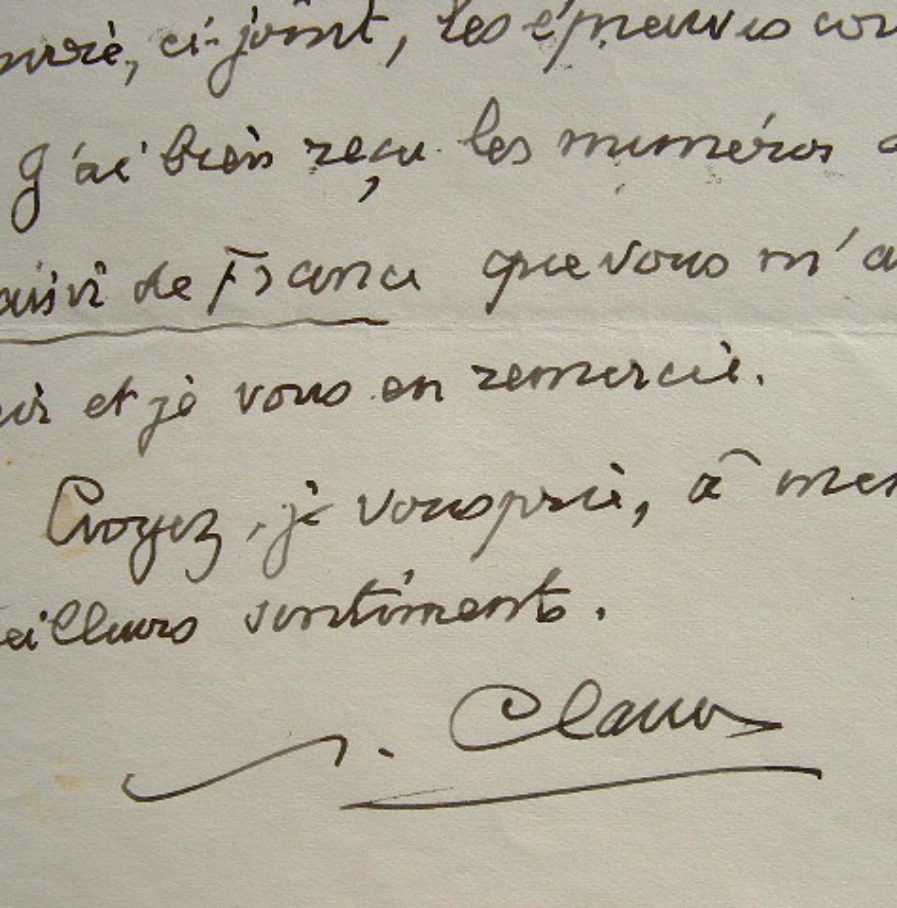 ci-joint, les épreuves
J'ai bien reçu les numéros
de France que vous m'a
et je vous en remercie.
Croyez, je vous prie, à mes
eilleurs sentiments.